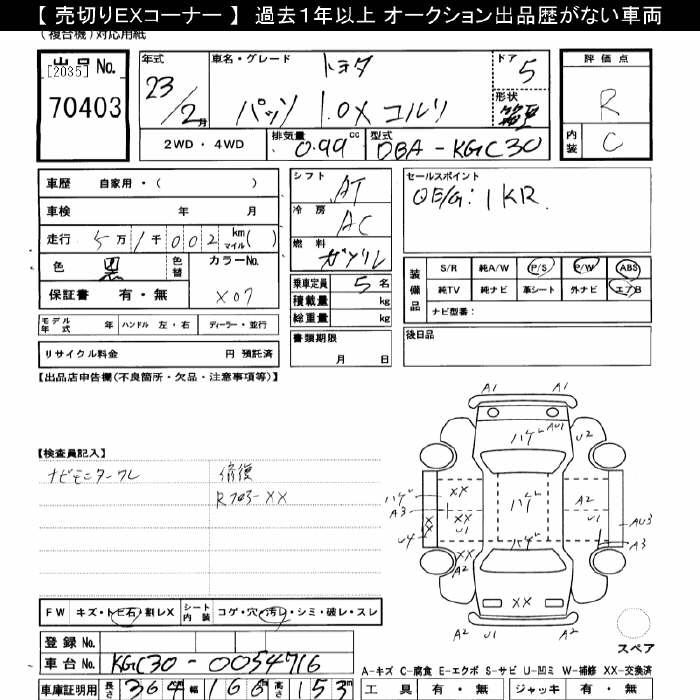 【 売切りEXコーナー 】 過去1年以上 オークション出品歴がない車両
(複合機)対応用紙
出品 No.
[2035]
70403
年式
23/2月
車名・グレード
トヨタ
パッソ 1.0X
ドア
5
形状
2WD・4WD
排気量
0.99 cc
型式
DBA-KGC30
評価点
R
内装
C
車歴 自家用・( )
車検 年 月
走行 5万1千002 km マイル( )
色 黒 色替 カラーNo.
保証書 有・無 X07
モデル年式 年 ハンドル 左・右 ディーラー・並行
リサイクル料金 円 預託済
シフト
AT
冷房
AC
燃料
ガソリン
乗車定員 5名
積載量 kg
総重量 kg
書類期限
月 日
セールスポイント
OE/G:1KR
装備品
S/R 純A/W P/S P/W ABS
純TV 純ナビ 革シート 外ナビ エアB
ナビ型番:
後日品
【出品店申告欄(不良箇所・欠品・注意事項等)】
【検査員記入】
ナビモニターワレ
修復
Rフロアー XX
A1 A1
ハゲ AU1 U2
ハゲ XX ハゲ A2
A3 XX U1 U1 AU3
U4 XX ハゲ A3
XX A2 A2
XX
A2 U1 A2
スペア
FW キズ・トビ石・割レX シート内装 コゲ・穴・汚レ・シミ・破レ・スレ
登録 No.
車台 No. KGC30-0054716
車庫証明用 長さ 364 幅 166 高さ 153
A-キズ C-腐食 E-エクボ S-サビ U-凹ミ W-補修 XX-交換済
工具 有・無 ジャッキ 有・無